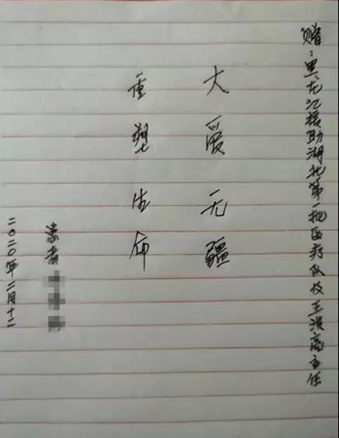 赠:黑龙江援助湖北第一批医疗队伍王洪亮主任
大爱无疆
重塑生命
患者
二〇二〇年二月十二